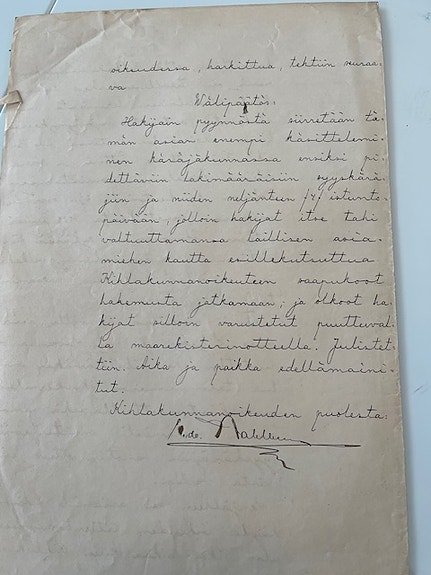 oikeudessa, harkittua, tehtiin seuraa-
va
Wälipäätös:
Hakijain pyynnöstä siirretään tä-
män asian enempi käsittelemi-
nen käräjäkunnassa ensiksi pi-
dettäviin lakimääräisiin syyskärä-
jiin ja niiden neljänteen /4/ istunto-
päivään, jolloin hakijat itse tahi
valtuuttamansa laillisen asia-
miehen kautta esillekutsuttua
Kihlakunnanoikeuteen saapukoot
hakemusta jatkamaan; ja olkoot ha-
kijat silloin varustetut puuttuval-
la maarekisterinotteella. Julistet-
tiin. Aika ja paikka edellämaini-
tut.
Kihlakunnanoikeuden puolesta: